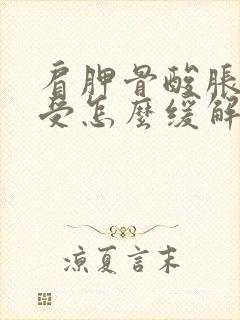 肩胛骨酸脹
受怎麼緩解
凉夏言末